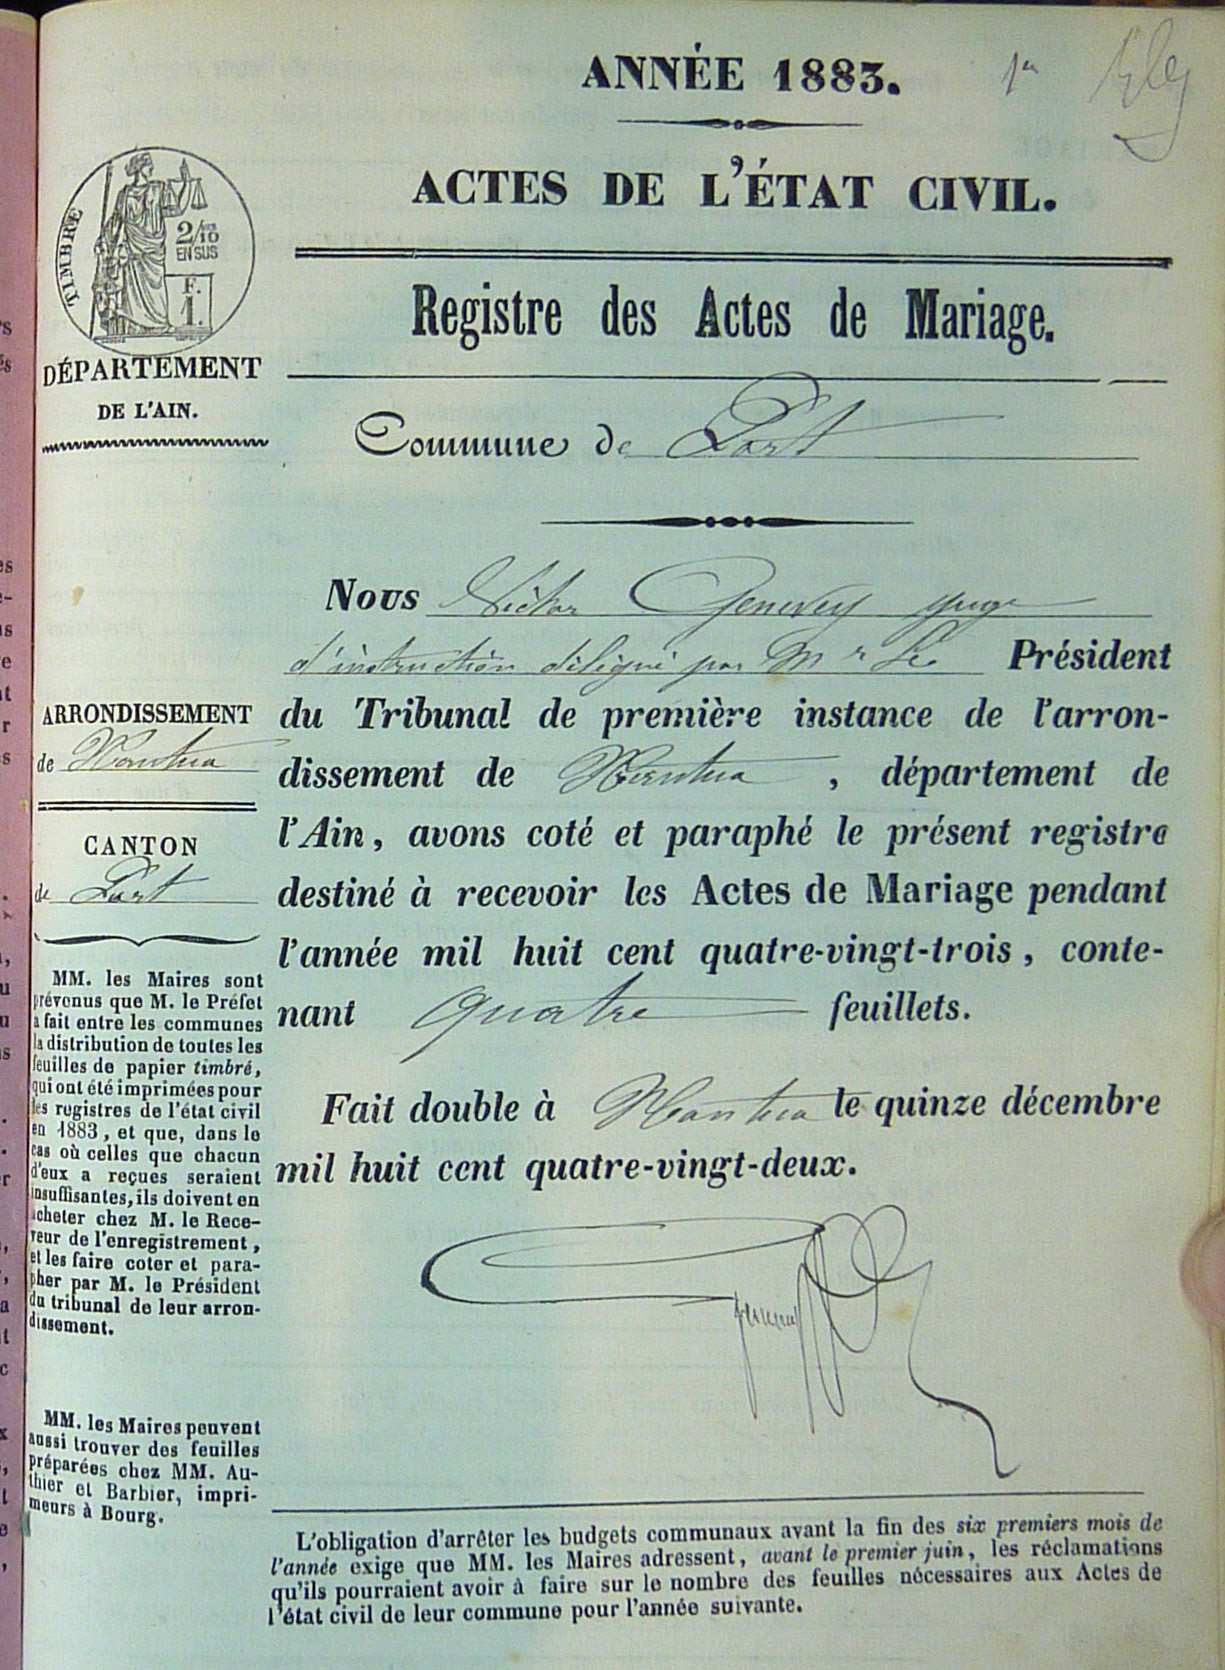 ANNÉE 1883.
1er
ACTES DE L'ÉTAT CIVIL.
TIMBRE
2/10
EN SUS
F.
1.
Registre des Actes de Mariage.
DÉPARTEMENT
DE L'AIN.
Commune de Port
Nous Victor Genevey juge
d'instruction délégué par Mr Le Président
du Tribunal de première instance de l'arron-
dissement de Nantua, département de
l'Ain, avons coté et paraphé le présent registre
destiné à recevoir les Actes de Mariage pendant
l'année mil huit cent quatre-vingt-trois, conte-
nant quatre feuillets.
Fait double à Nantua le quinze décembre
mil huit cent quatre-vingt-deux.
ARRONDISSEMENT
de Nantua
CANTON
de Port
MM. les Maires sont
prévenus que M. le Préfet
a fait entre les communes
la distribution de toutes les
feuilles de papier timbré,
qui ont été imprimées pour
les registres de l'état civil
en 1883, et que, dans le
cas où celles que chacun
d'eux a reçues seraient
insuffisantes, ils doivent en
acheter chez M. le Rece-
veur de l'enregistrement,
et les faire coter et para-
pher par M. le Président
du tribunal de leur arron-
dissement.
MM. les Maires peuvent
aussi trouver des feuilles
préparées chez MM. Au-
thier et Barbier, impri-
meurs à Bourg.
L'obligation d'arrêter les budgets communaux avant la fin des six premiers mois de
l'année exige que MM. les Maires adressent, avant le premier juin, les réclamations
qu'ils pourraient avoir à faire sur le nombre des feuilles nécessaires aux Actes de
l'état civil de leur commune pour l'année suivante.